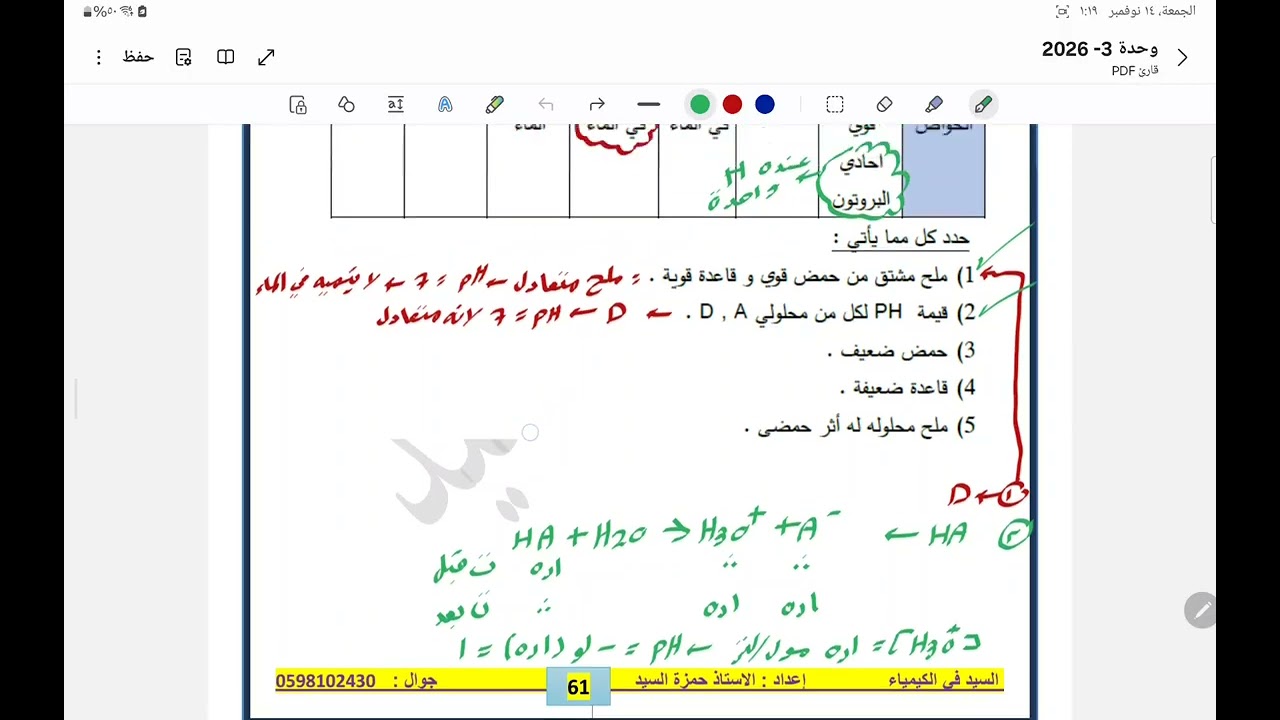 الجمعة، ١٤ نوفمبر ١:١٩
٥٠%
وحدة 3- 2026
قارئ PDF
حفظ
الخواص
قوي
احادي
البروتون
في الماء
في الماء
الماء
عنده H
واحدة
حدد كل مما يأتي :
1) ملح مشتق من حمض قوي و قاعدة قوية . = ملح متعادل ← pH = 7 ← لا يتميه في الماء
2) قيمة PH لكل من محلولي D , A . ← D ← pH = 7 لانه متعادل
3) حمض ضعيف .
4) قاعدة ضعيفة .
5) ملح محلوله له أثر حمضي .
① ← D
② HA ← HA + H2O → H3O+ + A-
ن قبل ٠,١
ن بعد ٠,١ ٠,١
[H3O+] = ٠,١ مول/لتر ← pH = - لو (٠,١) = ١
السيد في الكيمياء إعداد : الاستاذ حمزة السيد 61 جوال : 0598102430